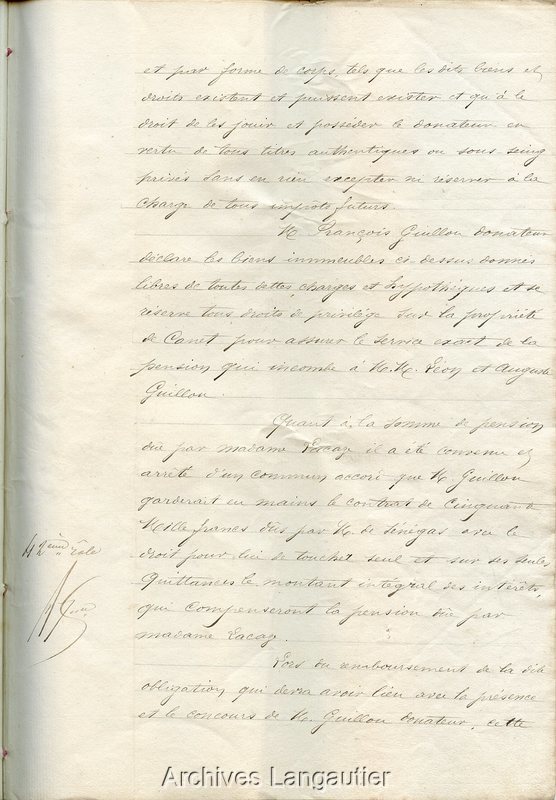 et par forme de corps, tels que les dits biens et
droits existent et puissent exister et qu'à le
droit de les jouir et posséder le donateur en
vertu de tous titres authentiques ou sous seing
privés sans en rien excepter ni réserver à la
charge de tous impots futurs.
M. François Guillou donateur
déclare les biens immeubles ci dessus donnés
libres de toutes dettes, charges et hypothèques et se
réserve tous droits de privilège sur la propriété
de Canet pour assurer le service exact de la
pension qui incombe à M.M. Léon et Auguste
Guillou.
Quant à la somme de pension
due par madame Lacaz il a été convenu et
arrêté d'un commun accord que M Guillou
garderait en mains le contrat de Cinquante
Mille francs dus par M. de Sénégas avec le
droit pour lui de toucher seul et sur ses seules
quittances le montant intégral des intérêts,
qui compenseront la pension due par
madame Lacaz.
Lors du remboursement de la dite
obligation qui devra avoir lieu avec la présence
et le concours de M. Guillou donateur, cette
42ème rôle
Archives Langautier